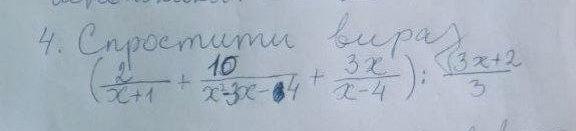 4. Спростити вираз
(2/(x+1) + 10/(x²-3x-4) + 3x/(x-4)) : (3x+2/3